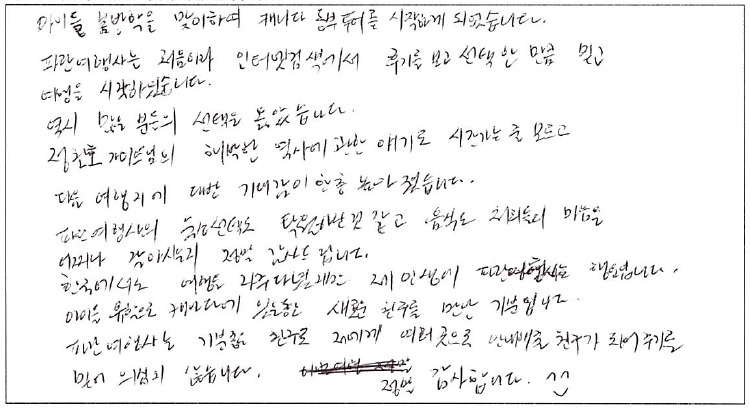 아이들 봄방학을 맞이하여 캐나다 동부투어를 시작하게 되었습니다.
파란여행사는 처음이라 인터넷검색에서 후기를 보고 선택한 만큼 믿고
여행을 시작하였습니다.
역시 많은 분들의 선택은 옳았습니다.
가이드님의 해박한 역사에 관한 얘기로 시간가는 줄 모르고
다음 여행지에 대한 기대감이 한층 높아졌습니다.
파란여행사의 탁월하신것 같고 음식도 저희들의 마음을
어찌나 잘아시는지 정말 감사드립니다.
한국에서도 여행을 자주다녔지만 제인생에 파란여행사는 행운입니다.
아이들 캐나다에 새로운 친구를 만난 기분입니다.
파란여행사는 기분좋은 친구로 저에게 여러곳으로 안내해줄 친구가 되어주기를
믿어 의심치 않습니다. 정말 감사합니다. ^^